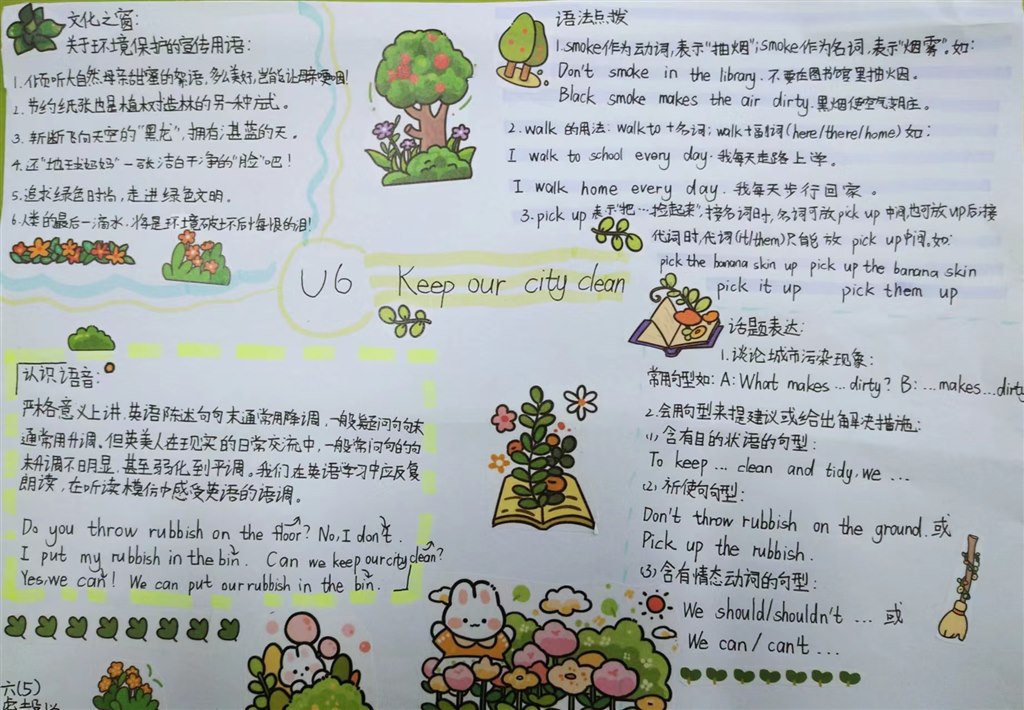 文化之窗:
关于环境保护的宣传用语:
2.节约纸张也是植树造林的另一种方式。
3.斩断飞向天空的"黑龙",拥有湛蓝的天。
4.还"地球妈妈"一张洁白干净的"脸"吧!
5.追求绿色时尚,走进绿色文明。
6.人类的最后一滴水,将是环境破坏后悔恨的泪!
U6 Keep our city clean
语法点拨
1.smoke作为动词,表示"抽烟";smoke作为名词,表示"烟雾"。如:
Don't smoke in the library.不要在图书馆里抽烟。
Black smoke makes the air dirty.黑烟使空气
2.walk 的用法: walk to+名词; walk+副词(here/there/home) 如:
I walk to school every day.我每天走路上学。
I walk home every day.我每天步行回家。
3.pick up 表示"把…捡起来",接名词时,名词可放pick up 中间,也可放up后;接
代词时,代词(it/them)只能放 pick up中间。如:
pick the banana skin up pick up the banana skin
pick it up pick them up
认识语音:
严格意义上讲,英语陈述句句末通常用降调,一般疑问句句末
通常用升调。但英美人在现实的日常交流中,一般常问句的句
末升调不明显,甚至弱化到平调。我们在英语学习中应反复
朗读,在听读模仿中感受英语的语调。
Do you throw rubbish on the floor? No, I don't.
I put my rubbish in the bin. Can we keep our city clean?
Yes, we can! We can put our rubbish in the bin.
话题表达:
1.谈论城市污染现象:
常用句型如: A: What makes … dirty? B: … makes … dirty
2.会用句型来提建议或给出解决措施:
(1)含有目的状语的句型:
To keep … clean and tidy, we …
(2)祈使句句型:
Don't throw rubbish on the ground.或
Pick up the rubbish.
(3)含有情态动词的句型:
We should/shouldn't … 或
We can/can't …
六(5)